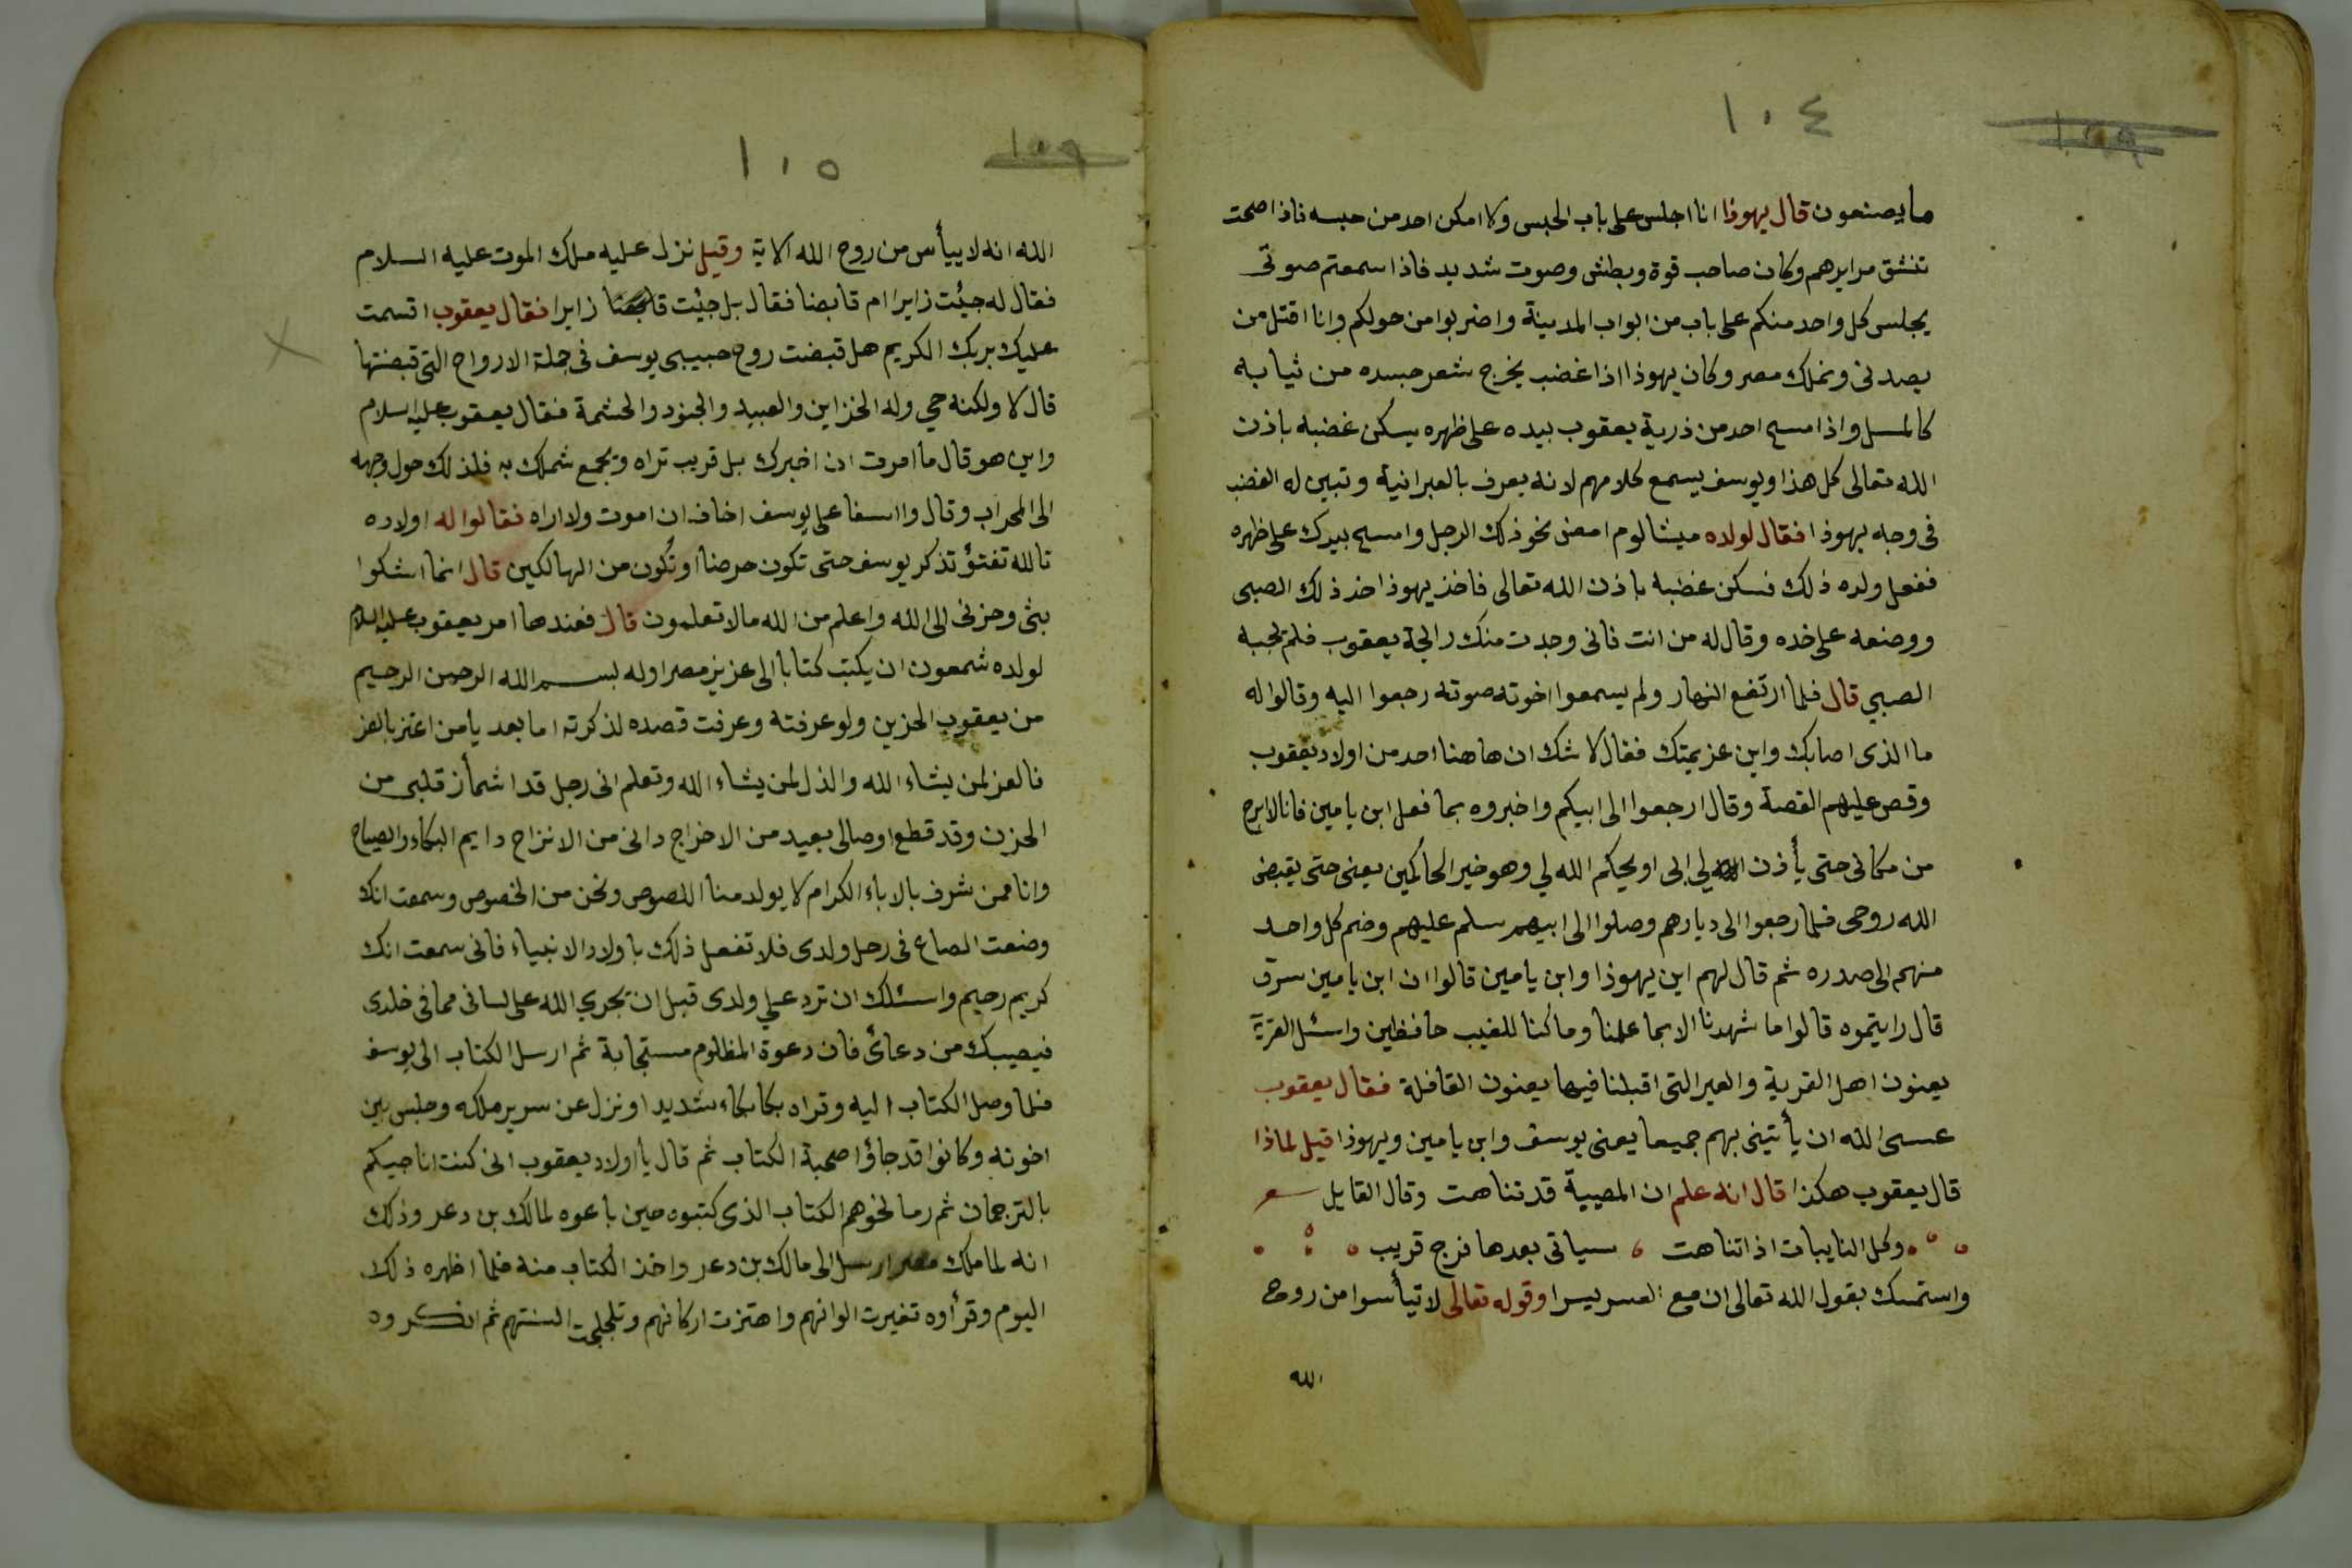 ١٠٤
١٠٩
ما يصنعون قال يهوذا انا اجلس على باب الحبس ولا امكن احد من حبسه فاذا صحت
تنشق مرايرهم وكان صاحب قوة وبطش وصوت شديد فاذا سمعتم صوتى
يجلس كل واحد منكم على باب من ابواب المدينة واضربوا من حولكم وانا اقتل من
يصدنى ونملك مصر وكان يهوذا اذا غضب يخرج شعر جسده من ثيابه
كالمسل واذا مسح احد من ذرية يعقوب بيده على ظهره يسكن غضبه باذن
الله تعالى كل هذا ويوسف يسمع كلامهم لانه يعرف بالعبرانية وتبين له الغضب
فى وجه يهوذا فقال لولده ميشالوم امض نحو ذلك الرجل وامسح بيدك على ظهره
ففعل ولده ذلك فسكن غضبه باذن الله تعالى فاخذ يهوذا خد ذلك الصبى
ووضعه على خده وقال له من انت فانى وجدت منك رايحة يعقوب فلم يجبه
الصبي قال فلما ارتفع النهار ولم يسمعوا اخوته صوته رجعوا اليه وقالوا له
ما الذى اصابك واين عزيمتك فقال لا شك ان هاهنا احد من اولاد يعقوب
وقص عليهم القصة وقال ارجعوا الى ابيكم واخبروه بما فعل ابن يامين فانا لا ابرح
من مكانى حتى يأذن لي ابى او يحكم الله لي وهو خير الحاكمين يعنى حتى يقبض
الله روحى فلما رجعوا الى ديارهم وصلوا الى ابيهم سلم عليهم وضم كل واحد
منهم الى صدره ثم قال لهم اين يهوذا وابن يامين قالوا ان ابن يامين سرق
قال رايتموه قالوا ما شهدنا الا بما علمنا وما كنا للغيب حافظين واسئل القرية
يعنون اهل القرية والعير التى اقبلنا فيها يعنون القافلة فقال يعقوب
عسى الله ان يأتينى بهم جميعا يعنى يوسف وابن يامين ويهوذا قيل لماذا
قال يعقوب هكذا قال انه علم ان المصيبة قد تناهت وقال القايل شعر
وكل النايبات اذا تناهت سياتى بعدها فرج قريب
واستمسك بقول الله تعالى ان مع العسر يسرا وقوله تعالى لا تيأسوا من روح
الله
١٠٥
١٠٩
الله انه لا ييأس من روح الله الاية وقيل نزل عليه ملك الموت عليه السلام
فقال له جئت زايرا ام قابضا فقال بل جئت زايرا فقال يعقوب اقسمت
عليك بربك الكريم هل قبضت روح حبيبى يوسف فى جملة الارواح التى قبضتها
قال لا ولكنه حي وله الخزاين والعبيد والجنود والحشمة فقال يعقوب عليه السلام
واين هو قال ما امرت ان اخبرك بل قريب تراه ويجمع شملك به فلذلك حول وجهه
الى المحراب وقال وا اسفا على يوسف اخاف ان اموت ولا اراه فقالوا له اولاده
تالله تفتؤ تذكر يوسف حتى تكون حرضا او تكون من الهالكين قال انما اشكوا
بثى وحزنى الى الله واعلم من الله ما لا تعلمون قال فعندها امر يعقوب عليه السلام
لولده شمعون ان يكتب كتابا الى عزيز مصر اوله بسم الله الرحمن الرحيم
من يعقوب الحزين ولو عرفته وعرفت قصده لذكرته اما بعد يا من اعتز بالعز
فالعز لمن يشاء الله والذل لمن يشاء الله وتعلم انى رجل قد اشمأز قلبى من
الحزن وقد قطع اوصالى بعيد من الافراح دانى من الانزاح دايم البكاء والصياح
وانا ممن شرف بالاباء الكرام لا يولد منا اللصوص ونحن من الخصوص وسمعت انك
وضعت الصاع فى رحل ولدى فلا تفعل ذلك باولاد الانبياء فانى سمعت انك
كريم رحيم واسئلك ان ترد علي ولدى قبل ان يجري الله على لسانى مما فى خلدى
فيصيبك من دعائى فان دعوة المظلوم مستجابة ثم ارسل الكتاب الى يوسف
فلما وصل الكتاب اليه وقراه بكا بكاء شديدا ونزل عن سرير ملكه وجلس بين
اخوته وكانوا قد جاؤا صحبة الكتاب ثم قال يا اولاد يعقوب انى كنت اناجيكم
بالترجمان ثم رما نحوهم الكتاب الذى كتبوه حين باعوه لمالك بن دعر وذلك
انه لما ملك مصر ارسل الى مالك بن دعر واخذ الكتاب منه فلما اظهره ذلك
اليوم وقرأوه تغيرت الوانهم واهتزت اركانهم وتلجلجت السنتهم ثم انكروه